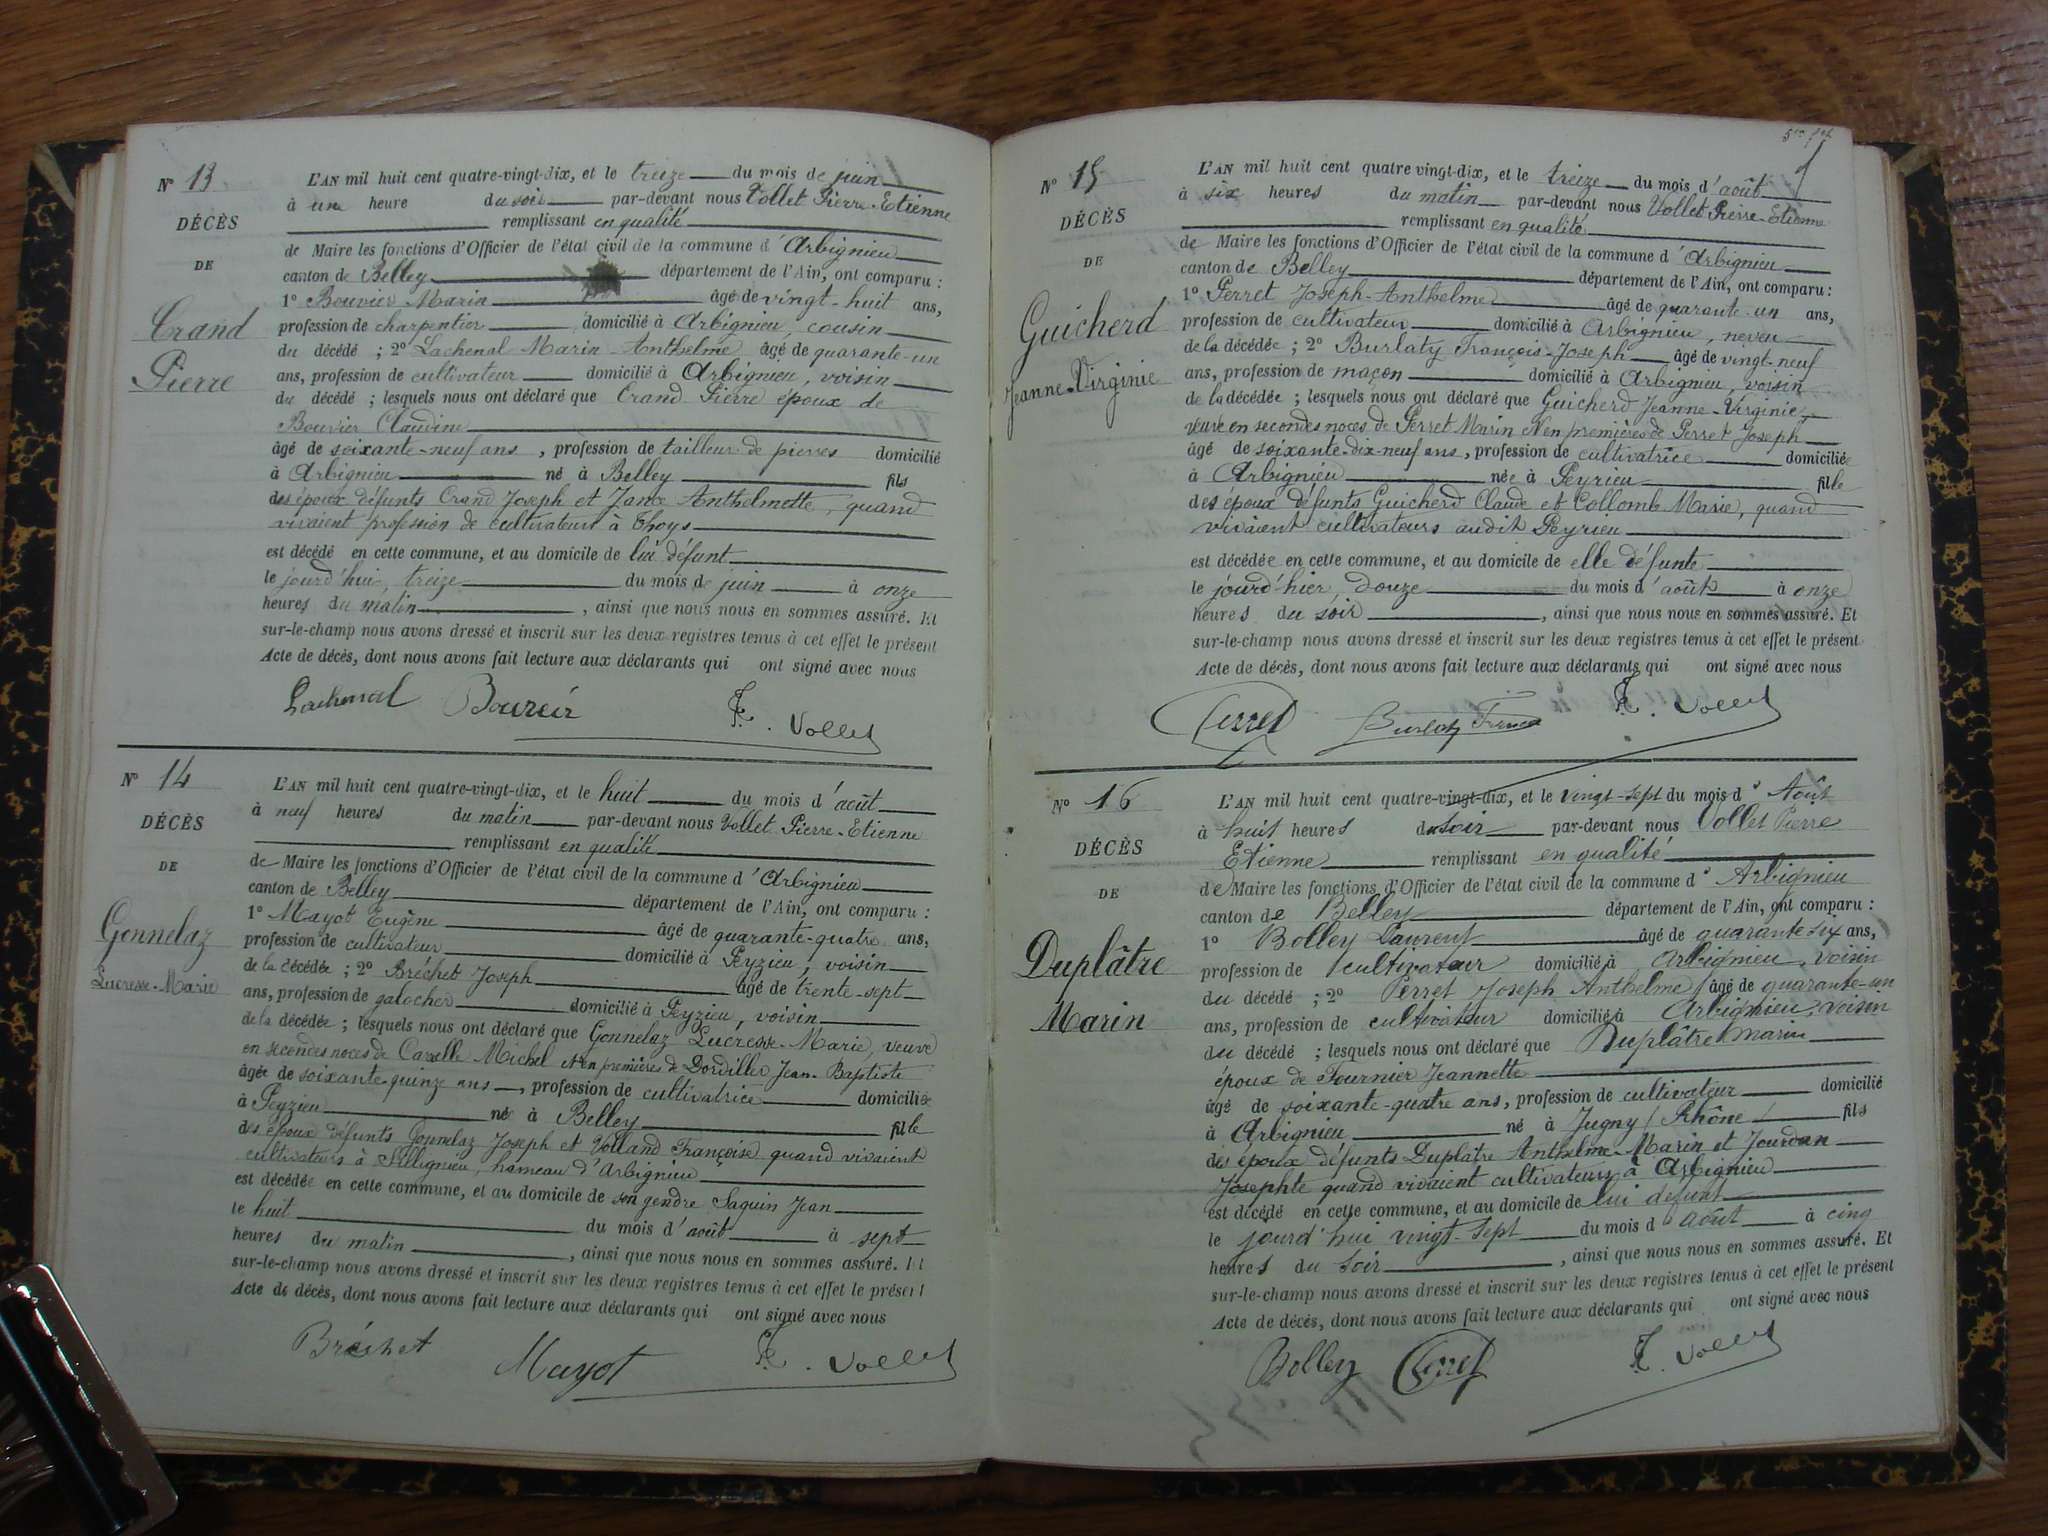 Nº 13
DÉCÈS
DE
Crand
Pierre
L'AN mil huit cent quatre-vingt-dix, et le treize du mois de juin
à une heure du soir par-devant nous Vollet Pierre-Etienne
remplissant en qualité
de Maire les fonctions d'Officier de l'état civil de la commune d'Arbignieu
canton de Belley département de l'Ain, ont comparu :
1º Bouvier Marin âgé de vingt-huit ans,
profession de charpentier domicilié à Arbignieu, cousin
du décédé ; 2º Lachenal Marin-Anthelme âgé de quarante-un
ans, profession de cultivateur domicilié à Arbignieu, voisin
du décédé ; lesquels nous ont déclaré que Crand Pierre époux de
Bouvier Claudine
âgé de soixante-neuf ans, profession de tailleur de pierres domicilié
à Arbignieu né à Belley fils
des époux défunts Crand Joseph et Anthelmette, quand
vivaient profession de cultivateurs à Thoys
est décédé en cette commune, et au domicile de lui défunt
le jourd'hui, treize du mois de juin à onze
heures du matin, ainsi que nous nous en sommes assuré. Et
sur-le-champ nous avons dressé et inscrit sur les deux registres tenus à cet effet le présent
Acte de décès, dont nous avons fait lecture aux déclarants qui ont signé avec nous
Lachenal Bouvier Vollet
Nº 14
DÉCÈS
DE
Gonnelaz
Lucresse-Marie
L'AN mil huit cent quatre-vingt-dix, et le huit du mois d'août
à neuf heures du matin par-devant nous Vollet Pierre-Etienne
remplissant en qualité
de Maire les fonctions d'Officier de l'état civil de la commune d'Arbignieu
canton de Belley département de l'Ain, ont comparu :
1º Mayot Eugène âgé de quarante-quatre ans,
profession de cultivateur domicilié à Peyzieu, voisin
de la décédée ; 2º Bréchet Joseph âgé de trente-sept
ans, profession de galocher domicilié à Peyzieu, voisin
de la décédée ; lesquels nous ont déclaré que Gonnelaz Lucresse-Marie, veuve
en secondes noces de Michel et en premières de Jean-Baptiste
âgée de soixante-quinze ans, profession de cultivatrice domiciliée
à Peyzieu né à Belley fille
des époux défunts Gonnelaz Joseph et Volland Françoise quand vivaient
cultivateurs à Sillignieu, hameau d'Arbignieu
est décédée en cette commune, et au domicile de son gendre Saguin Jean
le huit du mois d'août à sept
heures du matin, ainsi que nous nous en sommes assuré. Et
sur-le-champ nous avons dressé et inscrit sur les deux registres tenus à cet effet le présent
Acte de décès, dont nous avons fait lecture aux déclarants qui ont signé avec nous
Bréchet Mayot Vollet
Nº 15
DÉCÈS
DE
Guicherd
Jeanne-Virginie
L'AN mil huit cent quatre vingt-dix, et le treize du mois d'août
à six heures du matin par-devant nous Vollet Pierre-Etienne
remplissant en qualité
de Maire les fonctions d'Officier de l'état civil de la commune d'Arbignieu
canton de Belley département de l'Ain, ont comparu :
1º Perret Joseph-Anthelme âgé de quarante-un ans,
profession de cultivateur domicilié à Arbignieu, neveu
de la décédée ; 2º Burlaty François-Joseph âgé de vingt-neuf
ans, profession de maçon domicilié à Arbignieu, voisin
de la décédée ; lesquels nous ont déclaré que Guicherd Jeanne-Virginie,
veuve en secondes noces de Perret Marin et en premières de Perret Joseph
âgé de soixante-dix-neuf ans, profession de cultivatrice domiciliée
à Arbignieu née à Peyrieu fille
des époux défunts Guicherd Claude et Collomb Marie, quand
vivaient cultivateurs audit Peyrieu
est décédée en cette commune, et au domicile de elle défunte
le jourd'hier, douze du mois d'août à onze
heures du soir, ainsi que nous nous en sommes assuré. Et
sur-le-champ nous avons dressé et inscrit sur les deux registres tenus à cet effet le présent
Acte de décès, dont nous avons fait lecture aux déclarants qui ont signé avec nous
Perret Burlaty Vollet
Nº 16
DÉCÈS
DE
Duplâtre
Marin
L'AN mil huit cent quatre-vingt-dix, et le vingt-sept du mois d'Août
à huit heures du soir par-devant nous Vollet Pierre
Etienne remplissant en qualité
de Maire les fonctions d'Officier de l'état civil de la commune d'Arbignieu
canton de Belley département de l'Ain, ont comparu :
1º Bolley Laurent âgé de quarante six ans,
profession de cultivateur domicilié à Arbignieu, voisin
du décédé ; 2º Perret Joseph Anthelme âgé de quarante-un
ans, profession de cultivateur domicilié à Arbignieu, voisin
du décédé ; lesquels nous ont déclaré que Duplâtre Marin
époux de Fournier Jeannette
âgé de soixante-quatre ans, profession de cultivateur domicilié
à Arbignieu né à Jugny (Rhône) fils
des époux défunts Duplâtre Anthelme-Marin et Jourdan
Josephte quand vivaient cultivateurs à Arbignieu
est décédé en cette commune, et au domicile de lui défunt
le jourd'hui vingt-sept du mois d'août à cinq
heures du soir, ainsi que nous nous en sommes assuré. Et
sur-le-champ nous avons dressé et inscrit sur les deux registres tenus à cet effet le présent
Acte de décès, dont nous avons fait lecture aux déclarants qui ont signé avec nous
Bolley Perret Vollet